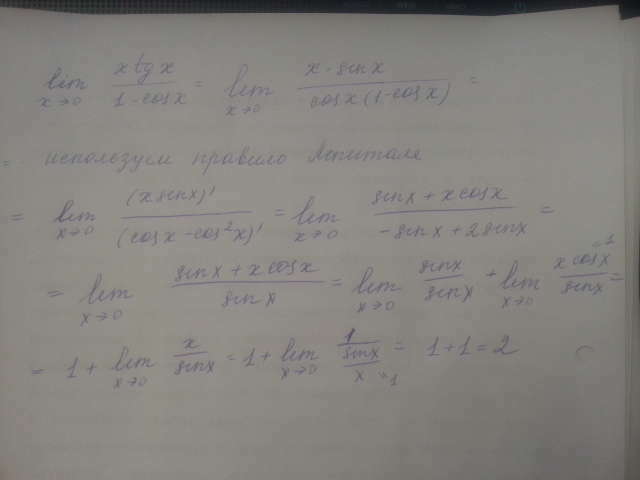 lim x→0 x tg x / 1 - cos x = lim x→0 x · sin x / cos x (1 - cos x) =
= используем правило Лопиталя
= lim x→0 (x sin x)' / (cos x - cos² x)' = lim x→0 sin x + x cos x / - sin x + 2 sin x =
= lim x→0 sin x + x cos x / sin x = lim x→0 sin x / sin x + lim x→0 x cos x / sin x =
= 1 + lim x→0 x / sin x = 1 + lim x→0 1 / sin x / x = 1 + 1 = 2